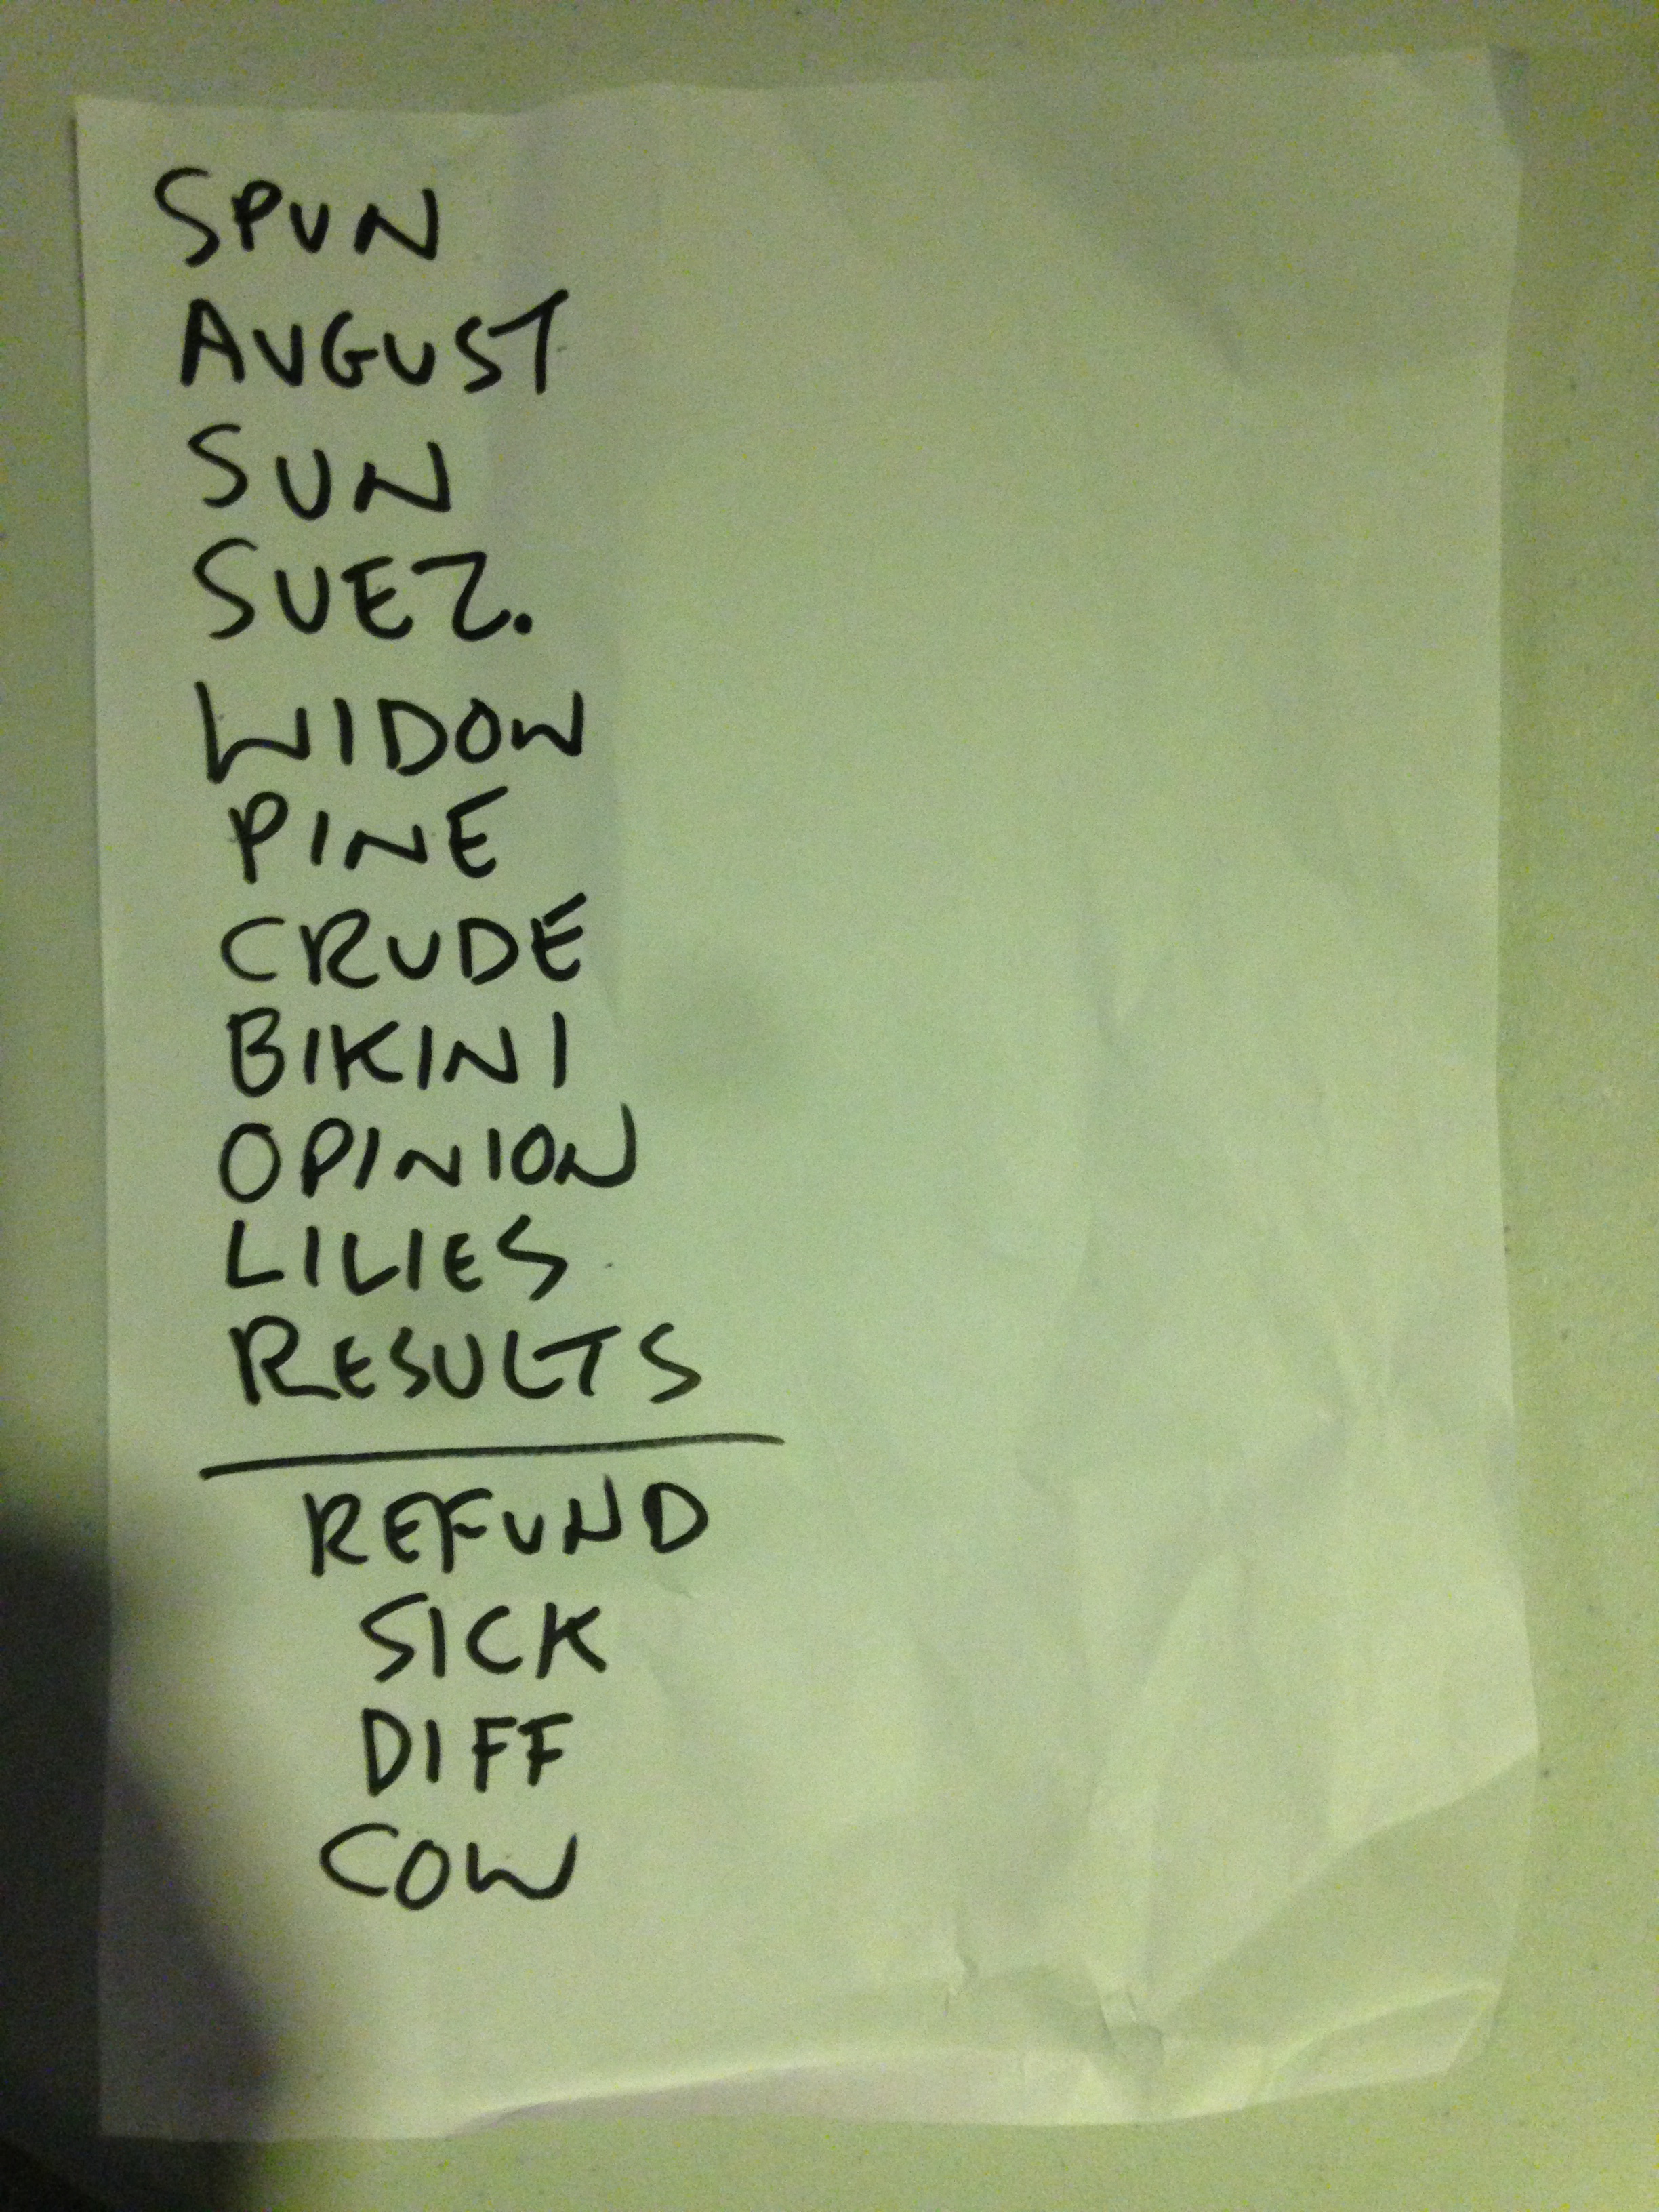 SPUN
AUGUST
SUN
SUEZ.
WIDOW
PINE
CRUDE
BIKINI
OPINION
LILIES
RESULTS
REFUND
SICK
DIFF
COW